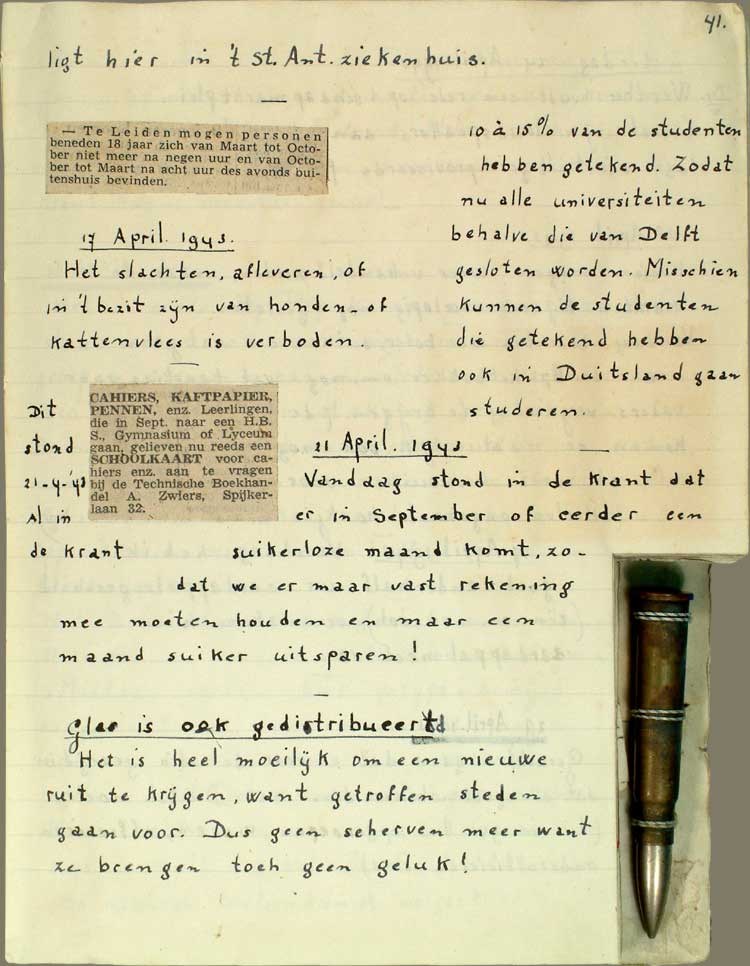 41.
ligt hier in 't St. Ant. ziekenhuis.
— Te Leiden mogen personen
beneden 18 jaar zich van Maart tot Octo-
ber niet meer na negen uur en van Octo-
ber tot Maart na acht uur des avonds bui-
tenshuis bevinden.
17 April. 1943.
Het slachten, afleveren, of
in 't bezit zijn van honden- of
kattenvlees is verboden.
10 à 15% van de studenten
hebben getekend. Zodat
nu alle universiteiten
behalve die van Delft
gesloten worden. Misschien
kunnen de studenten
die getekend hebben
ook in Duitsland gaan
studeren.
Dit
stond
21-4-'43
al in
de krant
CAHIERS, KAFTPAPIER,
PENNEN, enz. Leerlingen,
die in Sept. naar een H.B.
S., Gymnasium of Lyceum
gaan, gelieven nu reeds een
SCHOOLKAART voor ca-
hiers enz. aan te vragen
bij de Technische Boekhan-
del A. Zwiers, Spijker-
laan 32.
21 April. 1943
Vandaag stond in de krant dat
er in September of eerder een
suikerloze maand komt, zo-
dat we er maar vast rekening
mee moeten houden en maar een
maand suiker uitsparen!
Glas is ook gedistribueerd
Het is heel moeilijk om een nieuwe
ruit te krijgen, want getroffen steden
gaan voor. Dus geen scherven meer want
ze brengen toch geen geluk!